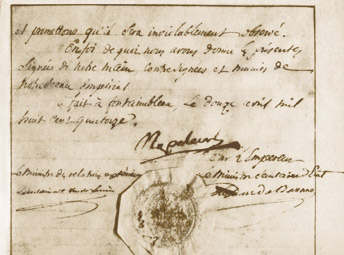 et promettons qu'il sera inviolablement observé.
En foi de quoi nous avons donné les présentes
signées de notre main contresignées et munies de
notre sceau Impérial
fait à fontainebleau, le douze avril mil
huit cent quatorze.
Napoleon
Par l'Empereur
Le Ministre des relations extérieures
le Ministre Secrétaire d'Etat